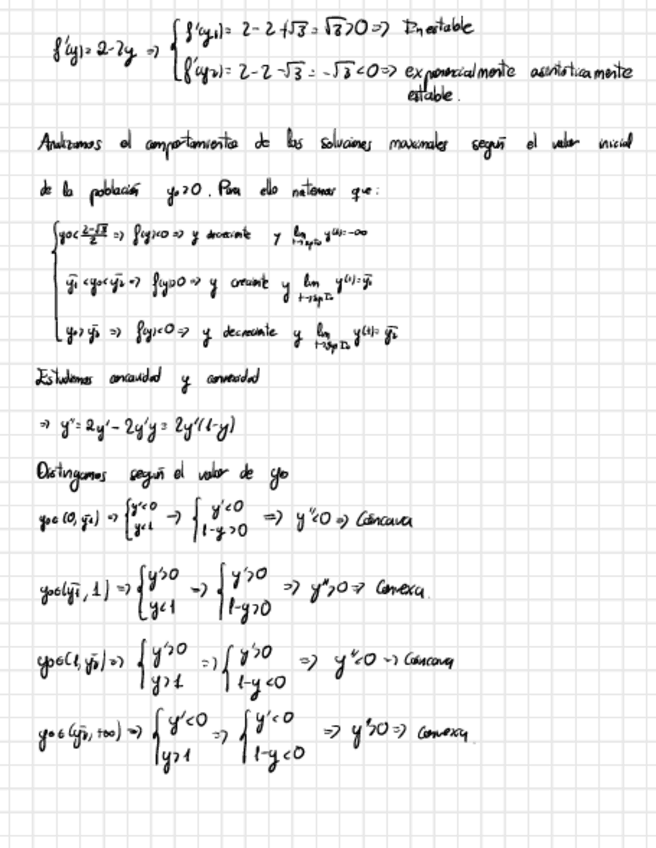 f'(y) = 2-2y => { f'(y₁) = 2-2+√3 = √3>0 => Inestable
f'(y₂) = 2-2-√3 = -√3<0 => exponencialmente asintóticamente
estable.
Analizamos el comportamiento de las soluciones maximales según el valor inicial
de la población y₀>0. Para ello notemos que:
{ y₀< (2-√3)/2 => f(y)<0 => y decreciente y lim y(t)=-∞
ȳ₁<y₀<ȳ₂ => f(y)>0 => y creciente y lim y(t)=ȳ₂
y₀>ȳ₂ => f(y)<0 => y decreciente y lim y(t)=ȳ₂
Estudiemos concavidad y convexidad
=> y''=2y'-2y'y=2y'(1-y)
Distingamos según el valor de y₀
y₀∈(0,ȳ₁) => { y'<0 y<1 -> { y'<0 1-y>0 => y''<0 => Cóncava
y₀∈(ȳ₁,1) => { y'>0 y<1 -> { y'>0 1-y>0 => y''>0 => Convexa.
y₀∈(1,ȳ₂) => { y'>0 y>1 => { y'>0 1-y<0 => y''<0 -> Cóncava
y₀∈(ȳ₂,+∞) => { y'<0 y>1 => { y'<0 1-y<0 => y''>0 => Convexa.